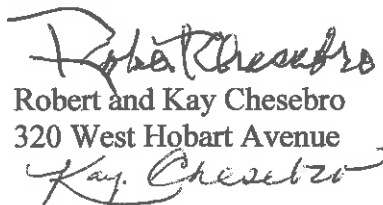 Robert Chesebro
Robert and Kay Chesebro
320 West Hobart Avenue
Kay. Chesebro